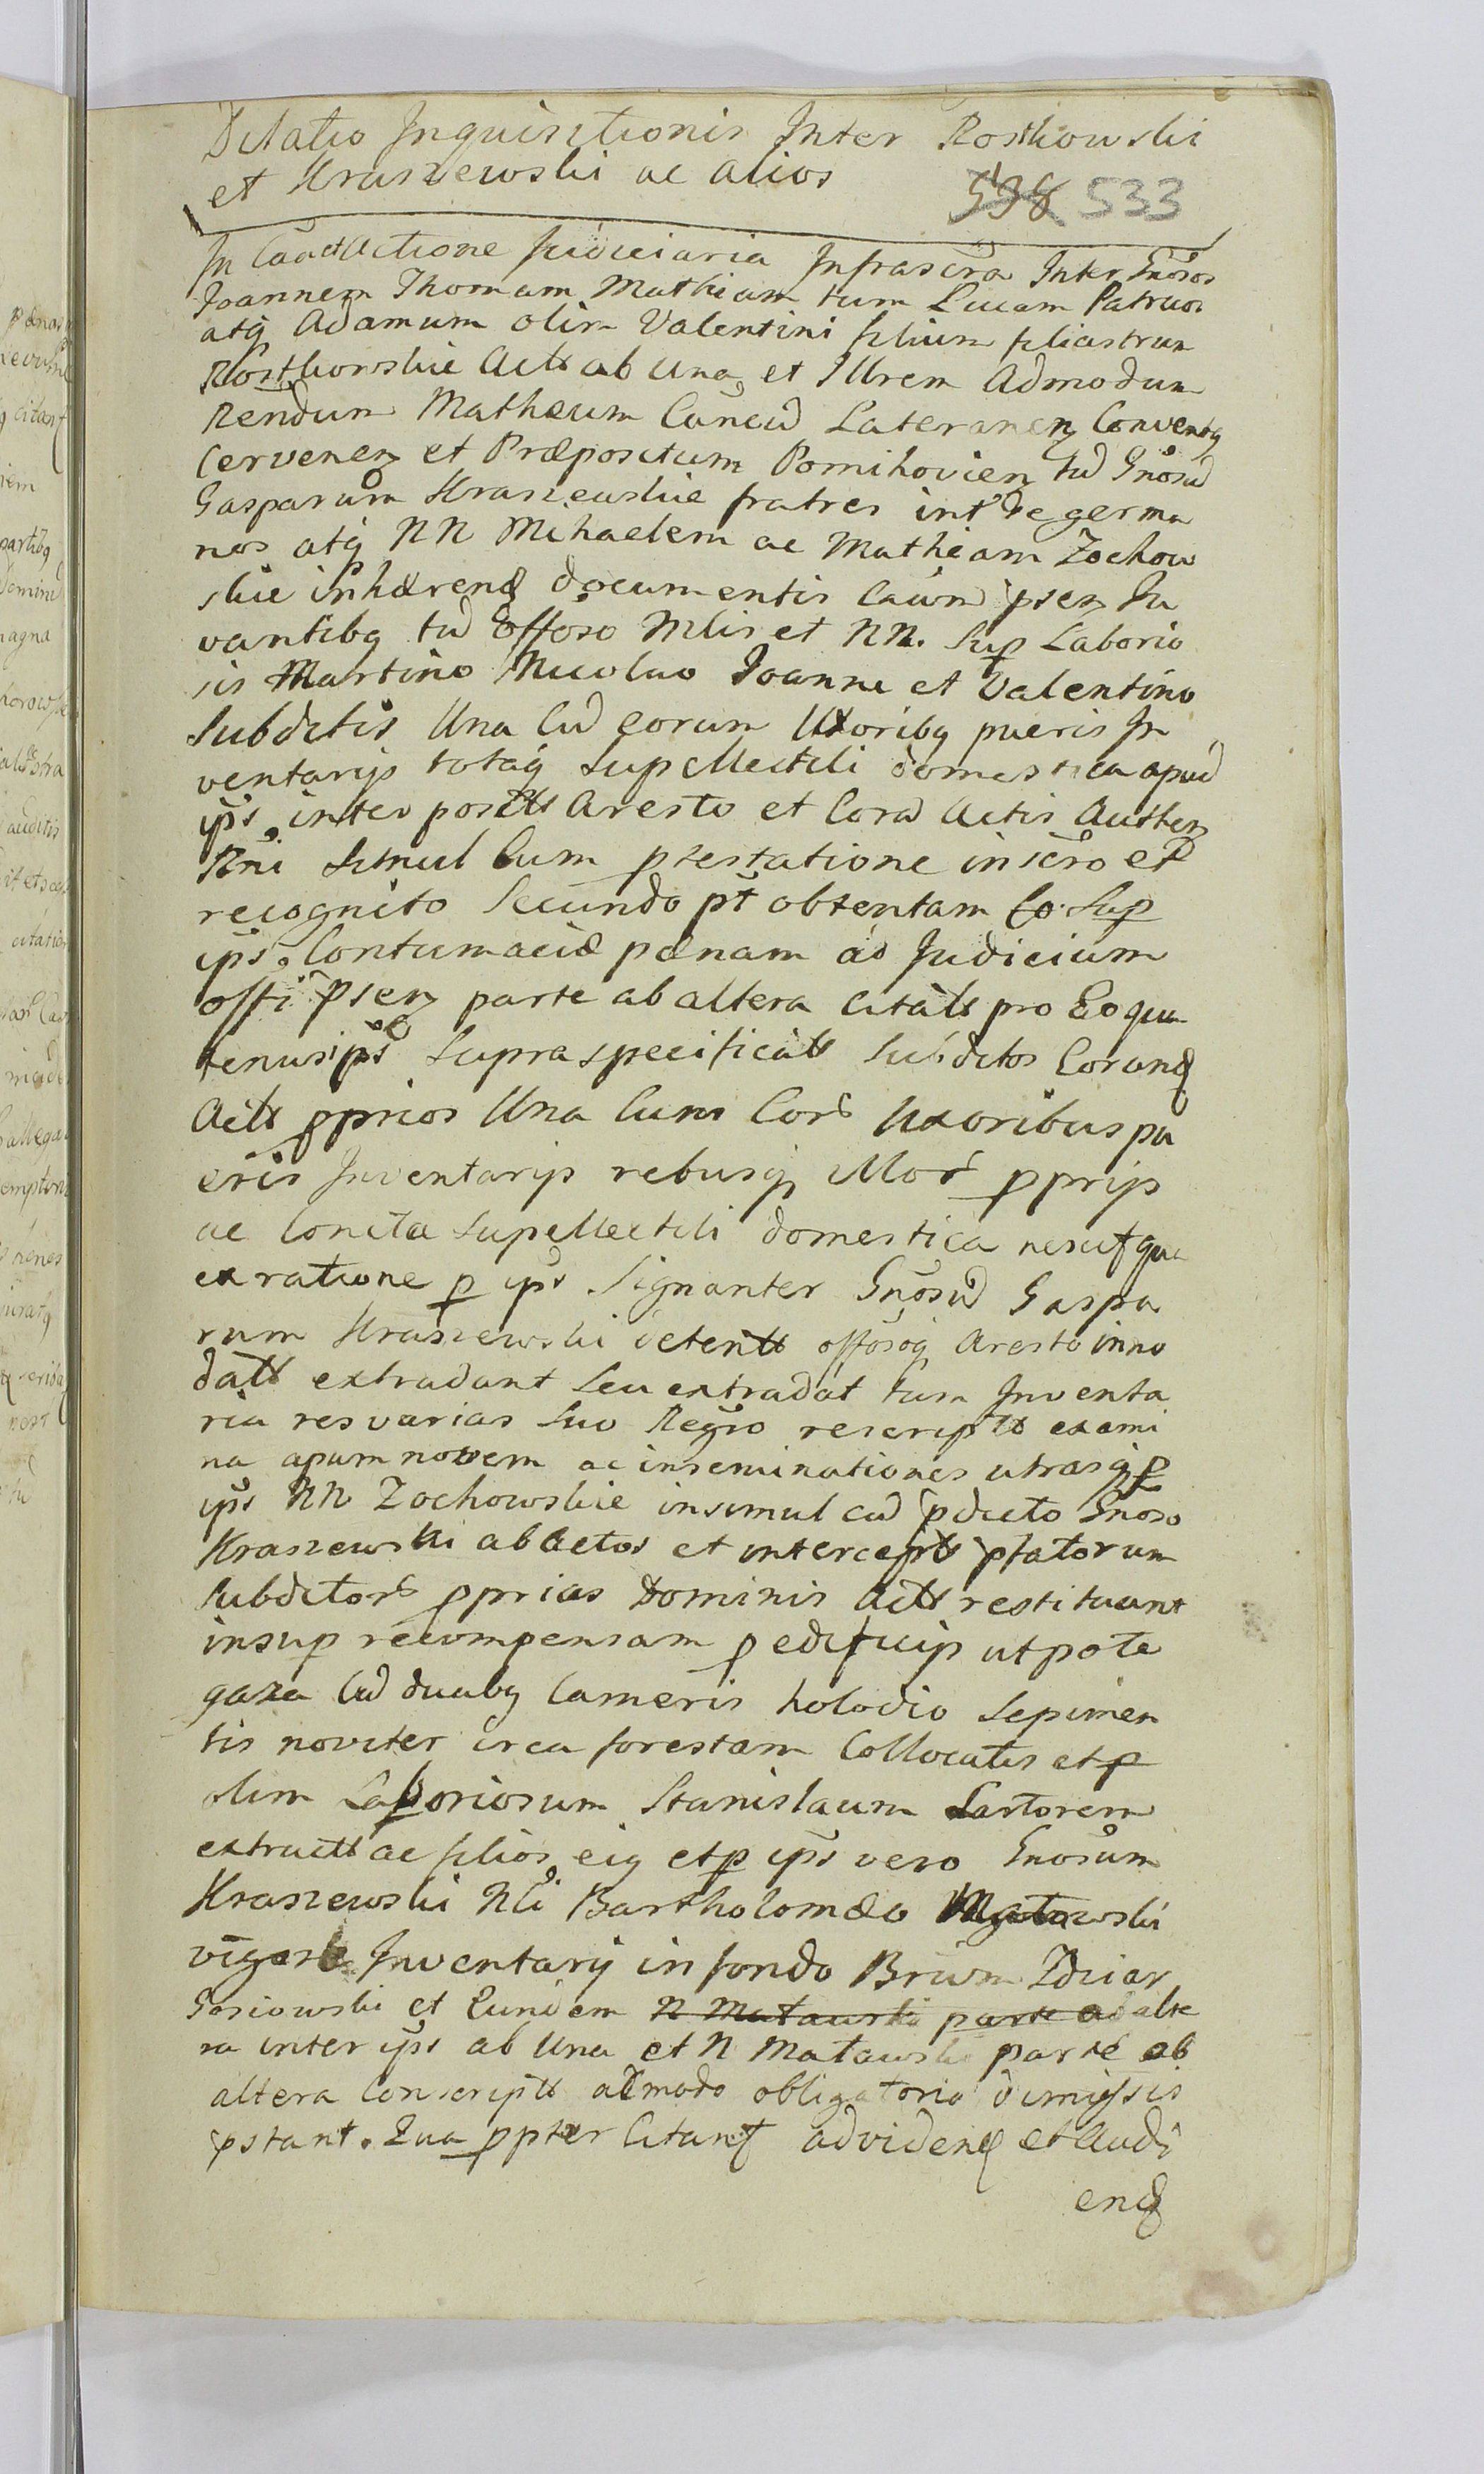 Dilatio Inquisitionis Inter Rostkowski
et Kraszewski ac alios
538 533
In Caa et Actione fiduciaria Infrascra Inter Gnosos
Joannem Thomam Mathiam tum Lucam Patruos
atq Adamum olim Valentini filium filiastrum
Rostkowskie Acts ab una, et Illrem Admodum
Rendum Matheum Cancum Lateranen Conventq
Cervenen et Præpositum Pomihovien tu Gnosu
Gasparum Kraszewskie fratres int se germa
nos atq NN Mihaelem ac Mathiam Zochow
skie inhærend documentis Caum psen Ju
vantibq tu Offoso Mlis et NN. Sup Laborio
sis Martino Nicolao Joanne et Valentino
Subditis Una Cu eorum Uxoribq pueris In
ventarijs totaq Supellectili domestica apud
ips interposits Aresto et Cora Actis Authen
Rni Simul Cum pstestatione inscro et
recognito Secundo pt obtentam Co Sup
ips Contumaciæ pænam ad Judicium
offi psen parte ab altera Citats pro Eo qua
tenus ips Supra specificats Subditos Eorund
Acts pprios Una Cum Cor Uxoribus pu
eris Inventarijs rebusq Illor pprijs
ac Concta Supellectili domestica nescitqua
ex ratione p ips Signanter Gnosu Gaspa
rum Kraszewski detents offosoq Aresto inno
dats extradant Seu extradat tum Inventa
ria res varias Suo Regro rescripts exami
na apum novem ac inseminationes utrasq p
ips NN Zochowskie insimul cu pdicto Gnoso
Kraszewski ablatos et intercepts pfatorum
Subditor pprias Dominis Acts restituant
insup recompensam p edificijs utpote
gaza Cu duabq Cameris holodio Sepimen
tis noviter circa forestam Collocatis et p
olim Laboriosum Stanislaum Sartorem
extructs ac filios eiq et p ips vero Gnosum
Kraszewski Nli Bartholomæo Matowski
vigore Inventarij in fondo Brium Zdziar
Gasiowski et Eundem N Matawski parte ad alte
ra inter ips ab Una et N Matawski parte ab
altera Conscripts ac modo obligatorio dimissis
pstant. Qua ppter Citant ad videnq et Audi
end